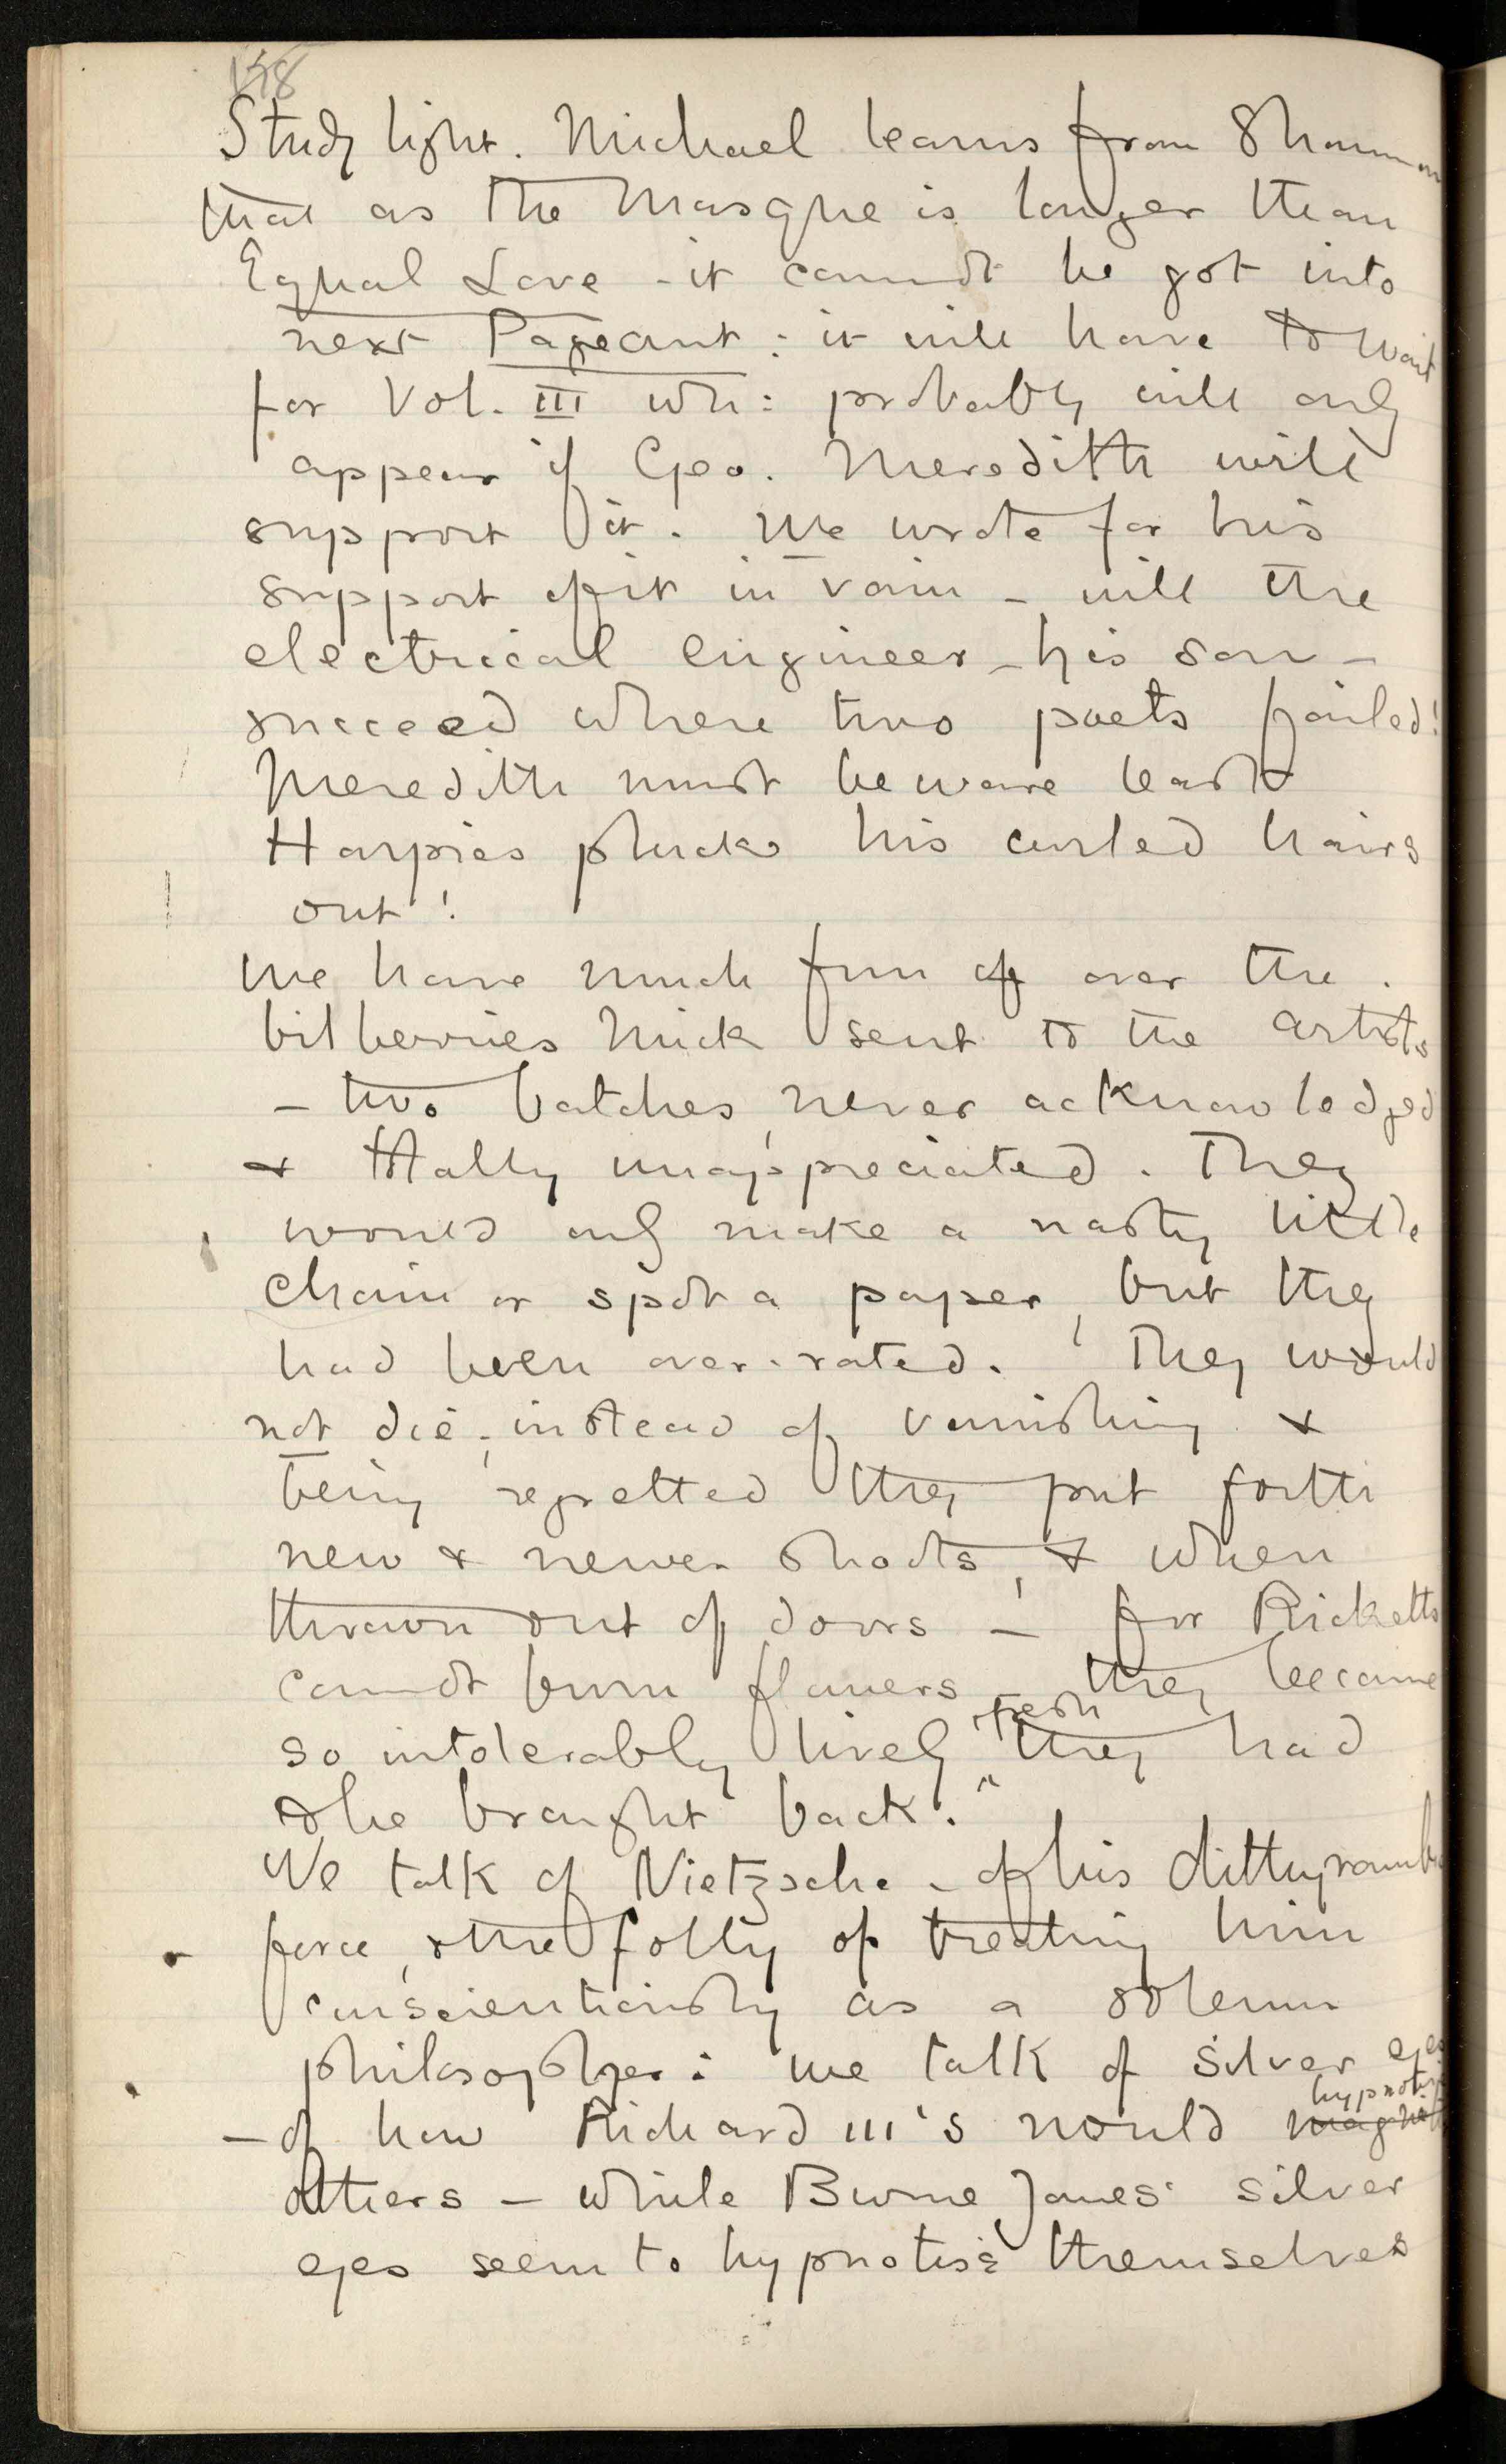 158
Study light. Michael learns from Shannon
that as the Masque is longer than
Equal Love - it cannot be got into
next Pageant : it will have to wait
for Vol. III wh: probably will only
appear if Geo. Meredith will
support it. We wrote for his
support of it in vain - will the
electrical engineer - his son -
succeed where two poets failed!
Meredith must beware least
Harpies pluck his curled hairs
out !
We have much fun of over the
bilberries Mick sent to the artists
- two batches, never acknowledged
& totally unappreciated. They
would only make a nasty little
chain or spot a paper, but they
had been over-rated. They would
not die; instead of vanishing &
being regretted they put forth
new & newer shoots, & when
thrown out of doors - for Ricketts
cannot burn flowers - they became
so intolerably lively "fresh they had
to be brought back."
We talk of Nietzsche - of his dithyrambic
force, & the folly of treating him
conscientiously as a solemn
philosopher: we talk of silver eyes
- of how Richard III's would magnetise hypnotise
others - while Burne Jones' silver
eyes seem to hypnotise themselves